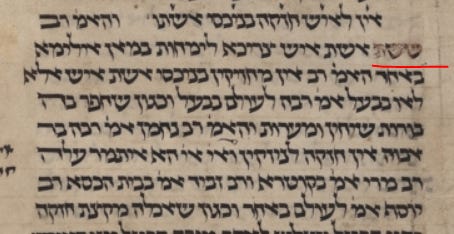 אין לאיש חזקה בנכסי אשתו והאמ' רב
ששת אשת איש צריכא לימחות במאן אילימא
באחר האמ' רב אין מחזיקין בנכסי אשת איש אלא
לאו בבעל אמ' רבה לעולם בבעל וכגון שחפר בה
בורות שיחין ומערות והאמ' רב נחמן אמ' רבה בר
אבוה אין חזקה לנזיקין הא איתמר עלה
רב מרי אמ' בקוטרא ורב זביד אמ' בבית הכסא רב
יוסף אמ' לעולם באחר וכגון שאכלה מקצת חזקה